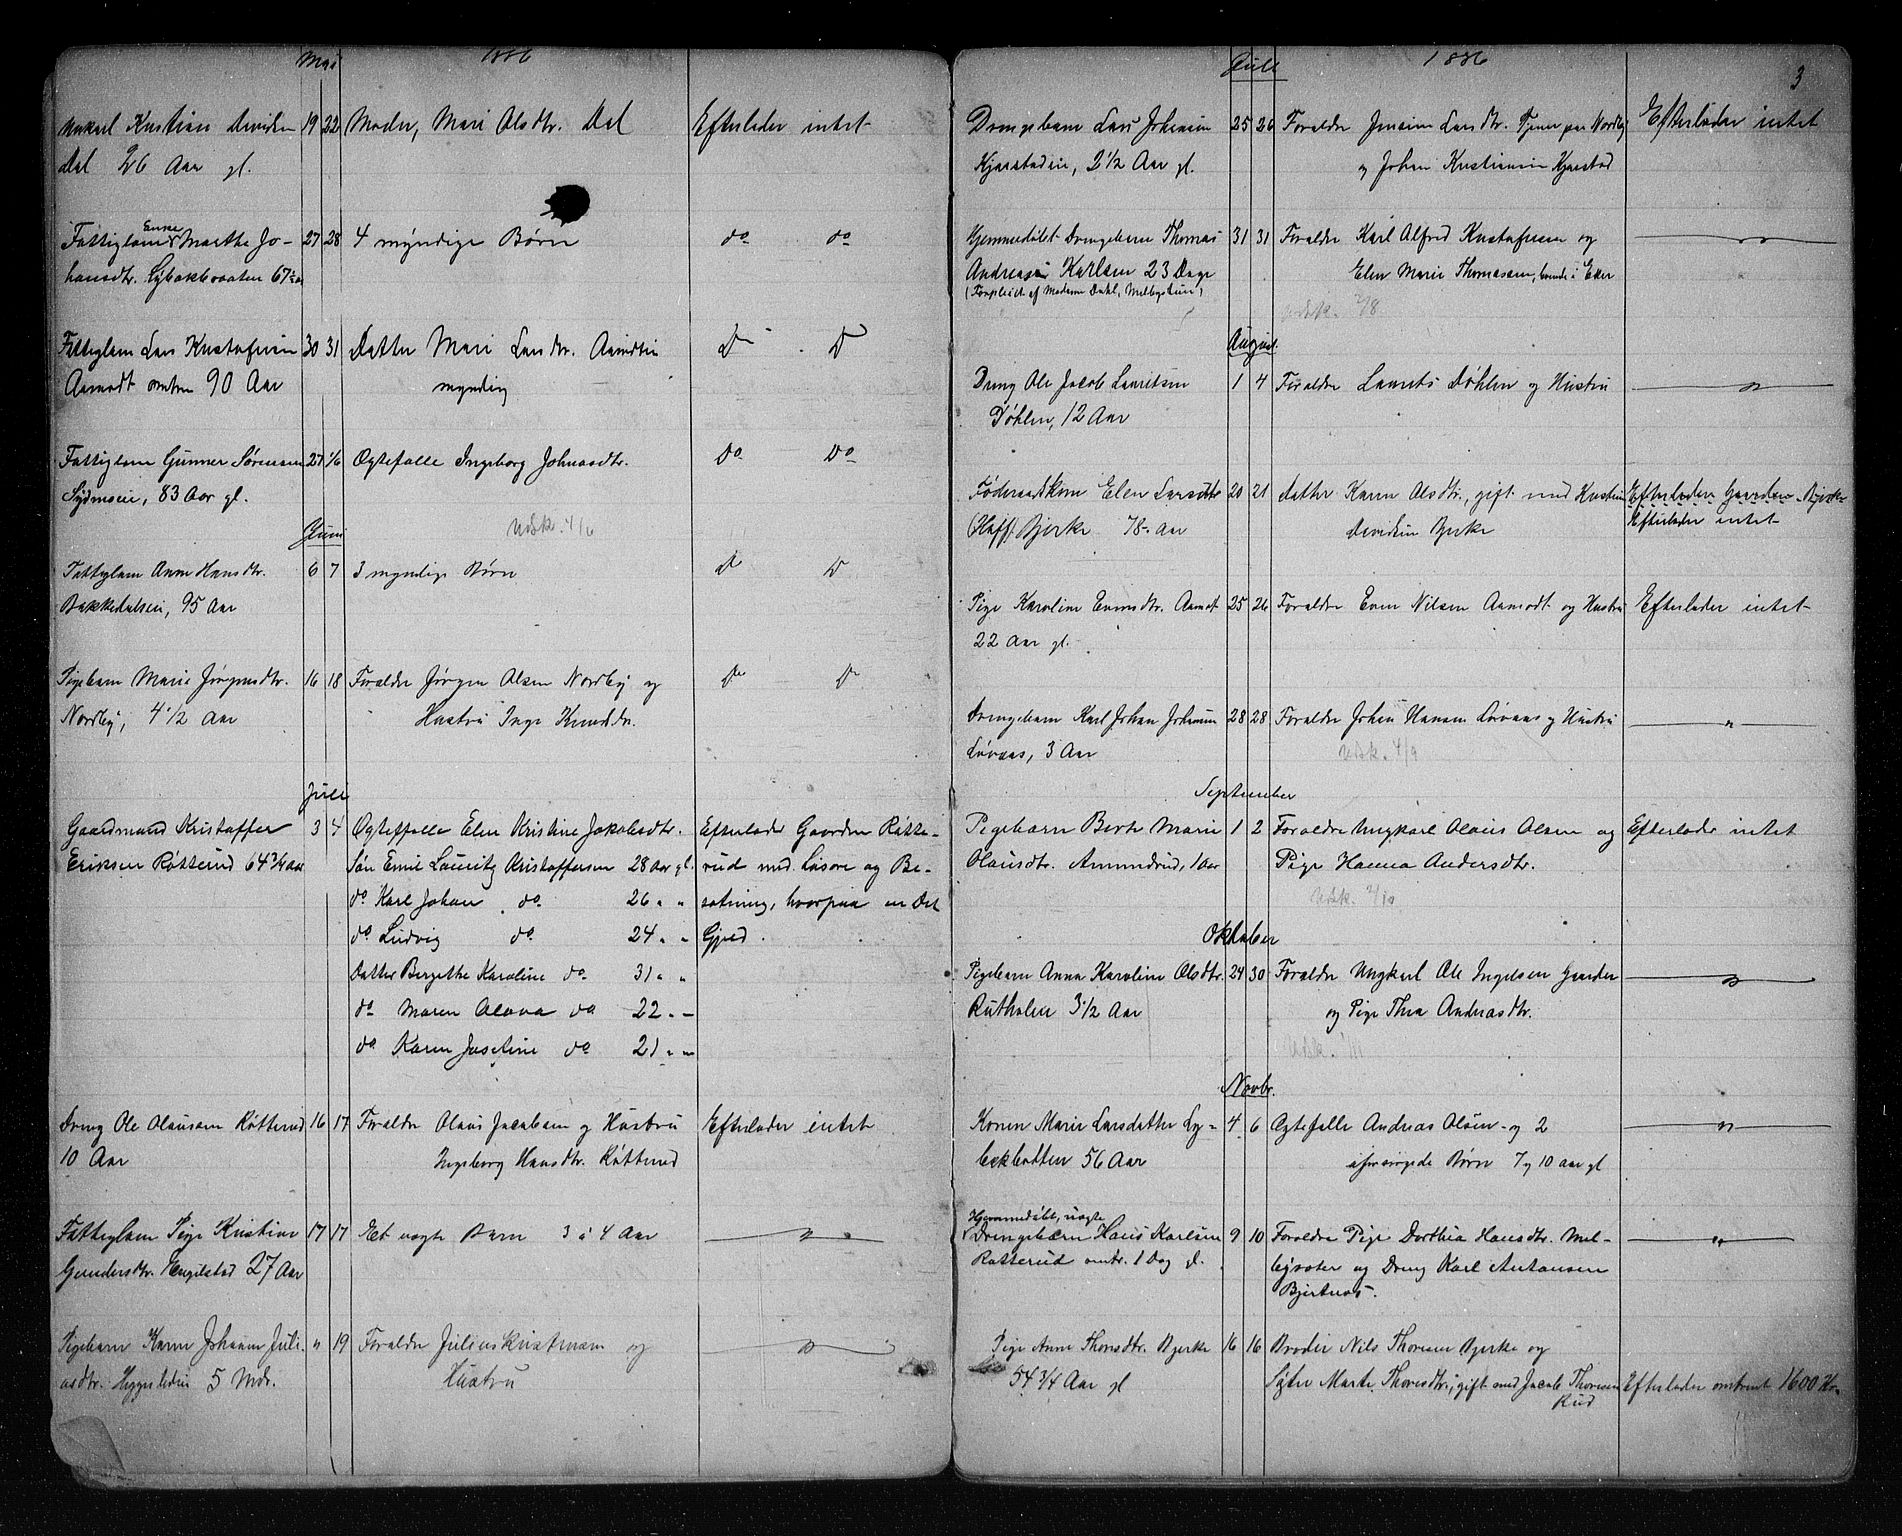 Mai 1886
Unkarl Kristian Davidsen 19 22 Moder, Mari Olsdtr. Dal Efterlader intet
Dal 26 Aar gl.
Fattiglem Enke Marthe Jo- 27 28 4 myndige Børn do do
hansdtr. Lybækbraaten 67½ aar
Fattiglem Lars Kristofersen 30 31 Datter Mari Larsdtr. Aamodt D D
Aamodt omtr 90 Aar myndig
Fattiglem Gunner Sørensen 27 1/6 Ægtefælle Ingeborg Johnsdtr. Do Do
83 Aar gl.
Juni Udsk. 4/6
Fattiglem Anne Hansdtr. 6 7 3 myndige Børn D D
Bakkedalseie, 95 Aar
Pigebarn Marie Jørgensdtr. 16 18 Forældre Jørgen Olsen Nordby og Do Do
Nordby, 4 1/2 Aar Hustru Inge Knudsdtr.
Juli
Gaardmand Kristoffer 3 4 Ægtefælle Elen Kristine Jakobsdtr. Efterlader Gaarden Røtte-
Eriksen Røtterud 64 3/4 Aar Søn Emil Lauritz Kristoffersen 28 Aar gl. rud med Løsøre og Be-
do Karl Johan do 26 " " sætning, hvorpaa en Del
do Ludvig do 24 " " Gjæld.
Datter Bergethe Karoline do 31 " "
do Maren Olava do 22 " "
do Karen Josefine do 21 " "
Dreng Ole Olausen Røtterud 16 17 Forældre Olaus Jacobsen og Hustru Efterlader intet
10 Aar Ingeborg Hansdtr. Røtterud
Fattiglem Pige Kristine 17 17 Et uægte Barn 3 à 4 Aar "
Gundersdtr. Engelstad 27 Aar
Pigebarn Karen Johanne Juli- " 19 Forældre Julius Kristiansen og "
usdtr. Heggesledeie 5 Mdr. Hustru
Juli 1886 3
Drengebarn Lars Johansen 25 26 Forældre Larsdtr. Tjener paa Nordby Efterlader intet
Kjærstadeie, 2 1/2 Aar gl. og Johan Kristiansen Kjærstad
Hjemmedøbt Drengebarn Thomas 31 31 Forældre Karl Alfred Kristofersen og "
Andreas Karlsen 23 Dage Elen Marie Thomassen, boende i Eker
(Forpleiet af Madame Dahl, Melbystuen) Udsk. 2/8
August
Dreng Ole Jacob Lauritsen 1 4 Forældre Laurits Døhlen og Hustru "
Døhlen, 12 Aar
Føderaadskone Elen Larsdtr 20 21 Datter Karen Olsdtr., gift med Kristian Efterlader Gaarden Bjerke
(Haff) Bjerke 78 Aar Davidsen Bjerke Efterlader intet
Pige Karoline Evensdtr. Aamot 25 26 Forældre Even Nilsen Aamodt og Hustru Efterlader intet
22 Aar gl.
Drengebarn Karl Johan Johansen 28 28 Forældre Johan Hansen Løvaas og Hustru "
Løvaas, 3 Aar Udsk. 4/9
September
Pigebarn Berte Marie 1 2 Forældre Ungkarl Olaus Olsen og Efterlader intet
Olausdtr. Amundrud, 1 Aar Pige Hanna Andersdtr.
Udsk. 2/10
Oktober
Pigebarn Anna Karoline Olsdtr. 24 30 Forældre Ungkarl Ole Ingelsen Gaarder "
Rutholen 3 1/2 Aar og Pige Thea Andreasdtr.
Udsk. /11
Novbr.
Karen Marie Larsdatter Ly- 4 6 Ægtefælle Andreas Olsen og 2 "
bekbotten 56 Aar uforsørgede Børn 7 og 10 aar gl
Hjemmedøbt, uægte
Drengebarn Hans Karlsen 9 10 Forældre Pige Dorthea Hansdtr. Mel- "
Røtterud omtr. 1 Dag gl. og Dreng Karl Antonsen
Bjertnæs.
Pige Anne Thorsdtr. Bjerke 16 16 Broder Nils Thorsen Bjerke og
54 3/4 Aar gl Søster Marte Thorsdtr., gift med Jacob Thorsen Efterlader omtrent 1600 Kr.
Rud